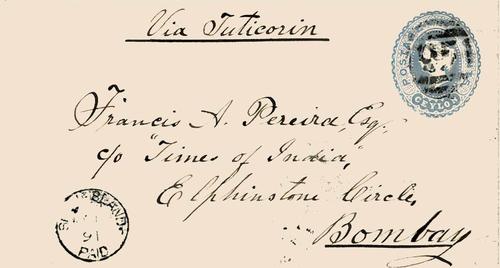 Via Tuticorin
POSTAGE
CEYLON
Francis A. Pereira, Esq.,
c/o "Times of India,
Elphinstone Circle,
Bombay
91
PAID